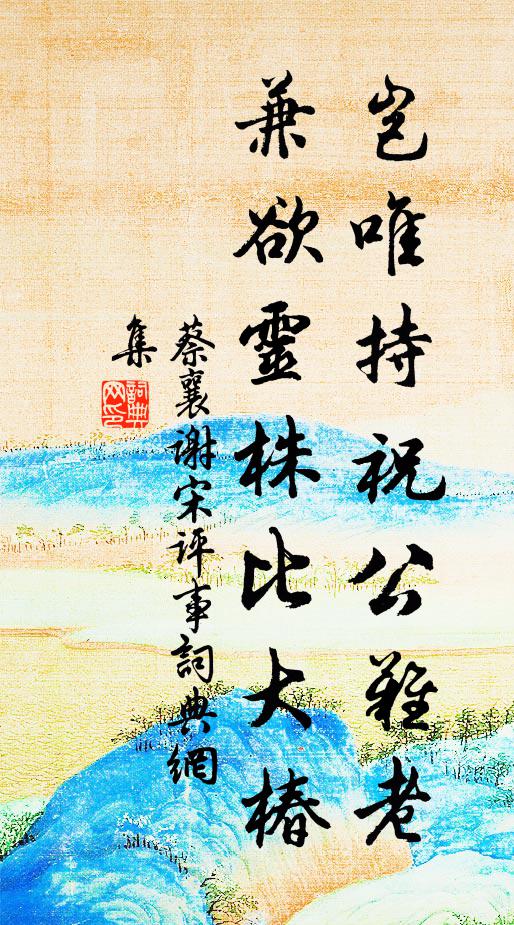 豈唯持祝公難老
兼欲靈株比大椿
蔡襄謝宋评事詞典網
集
詞典
网印